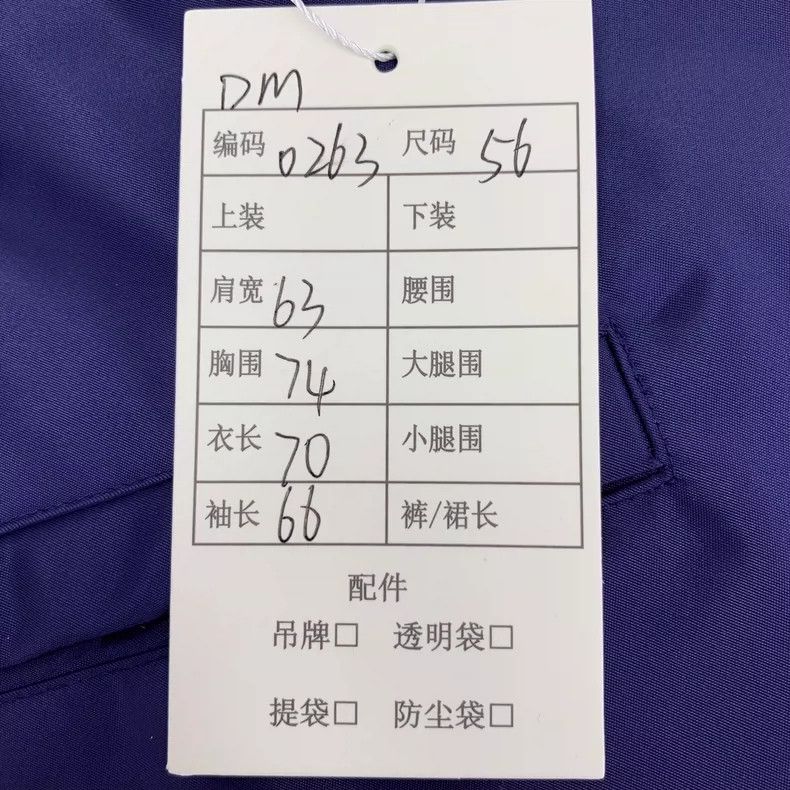 DM
编码 0263 尺码 56
上装 下装
肩宽 63 腰围
胸围 74 大腿围
衣长 70 小腿围
袖长 66 裤/裙长
配件
吊牌□ 透明袋□
提袋□ 防尘袋□